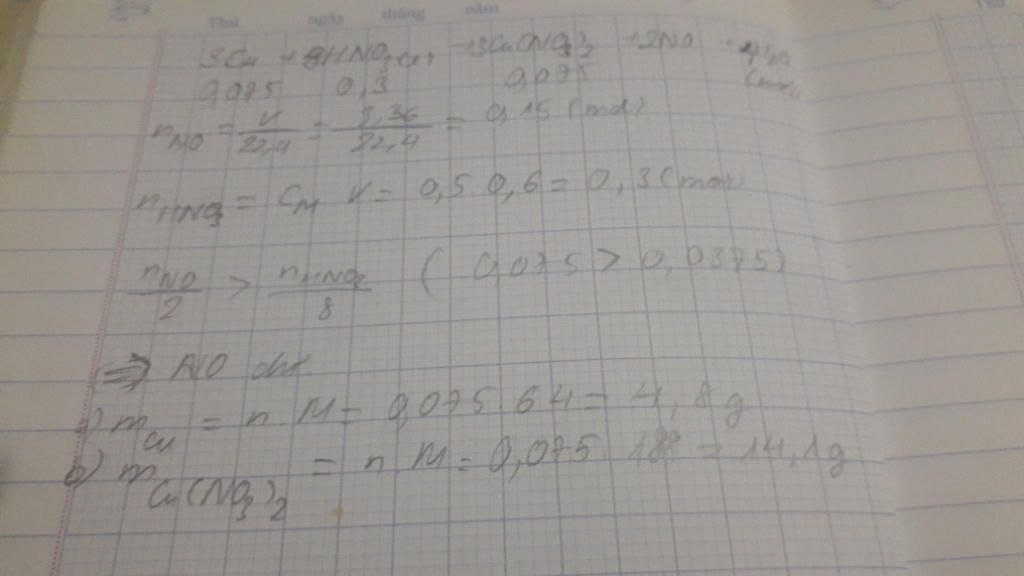 Thứ ngày tháng năm
3Cu + 8HNO3(l) → 3Cu(NO3)2 + 2NO + 4H2O
0,075 0,3 0,075 (mol)
nNO = V/22,4 = 3,36/22,4 = 0,15 (mol)
nHNO3 = CM V = 0,5 0,6 = 0,3 (mol)
nNO/2 > nHNO3/8 ( 0,075 > 0,0375)
=> NO dư
a) mCu = n M = 0,075 64 = 4,8 g
b) mCu(NO3)2 = n M = 0,075. 188 = 14,1g